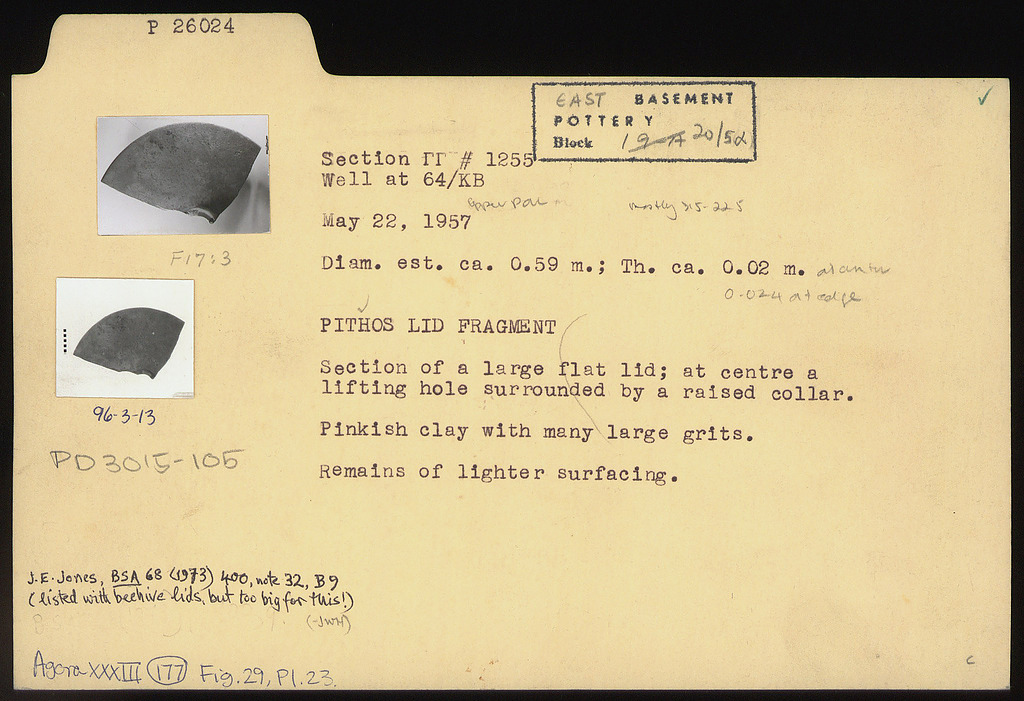 P 26024
EAST BASEMENT
POTTERY
Block 20/52
Section ΠΓ # 1255
Well at 64/KB
mostly 215-225
May 22, 1957
F17:3
Diam. est. ca. 0.59 m.; Th. ca. 0.02 m. at center
0.024 at edge
PITHOS LID FRAGMENT
Section of a large flat lid; at centre a
lifting hole surrounded by a raised collar.
96-3-13
Pinkish clay with many large grits.
PD3015-105
Remains of lighter surfacing.
J.E. Jones, BSA 68 (1973) 400, note 32, B9
(listed with beehive lids, but too big for this!)
(-JWH)
Agora XXXIII 177 Fig. 29, Pl. 23.
c